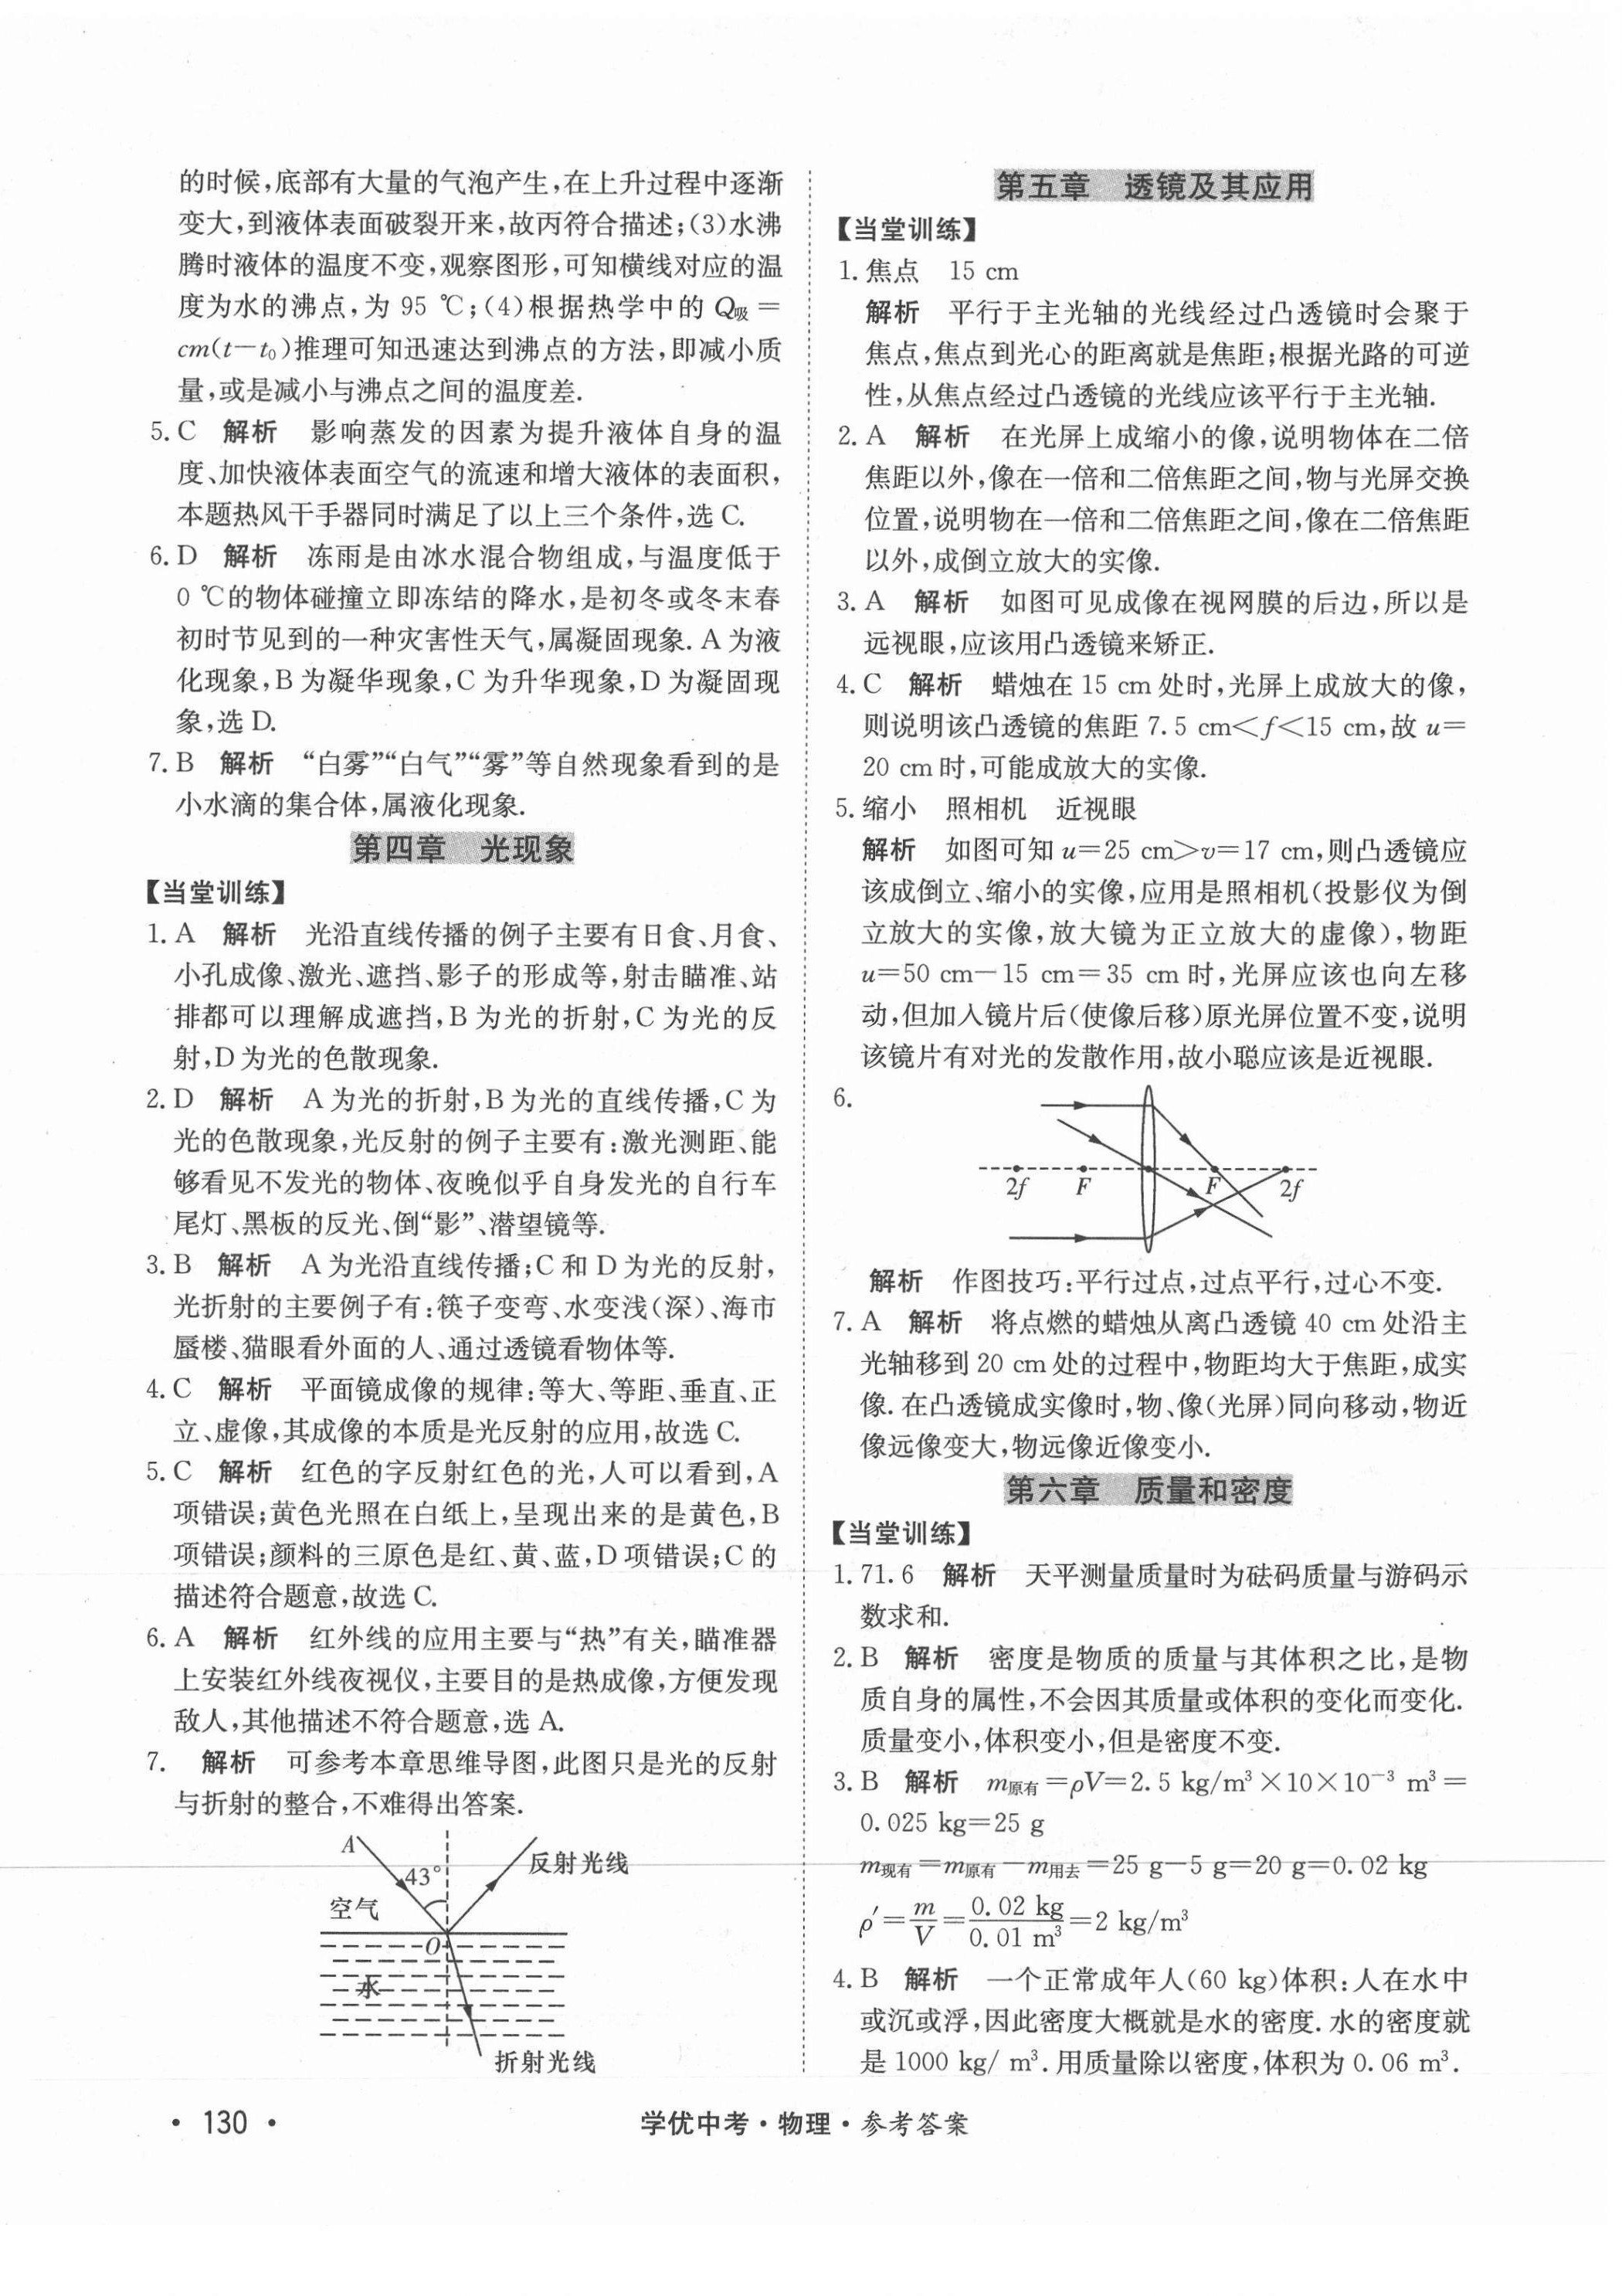 的时候,底部有大量的气泡产生,在上升过程中逐渐
变大,到液体表面破裂开来,故丙符合描述;(3)水沸
腾时液体的温度不变,观察图形,可知横线对应的温
度为水的沸点,为 95 ℃;(4)根据热学中的 Q吸=
cm(t-t₀)推理可知迅速达到沸点的方法,即减小质
量,或是减小与沸点之间的温度差.
5. C 解析 影响蒸发的因素为提升液体自身的温
度、加快液体表面空气的流速和增大液体的表面积,
本题热风干手器同时满足了以上三个条件,选 C.
6. D 解析 冻雨是由冰水混合物组成,与温度低于
0 ℃的物体碰撞立即冻结的降水,是初冬或冬末春
初时节见到的一种灾害性天气,属凝固现象. A 为液
化现象,B 为凝华现象,C 为升华现象,D 为凝固现
象,选 D.
7. B 解析 “白雾”“白气”“雾”等自然现象看到的是
小水滴的集合体,属液化现象.
第四章 光现象
【当堂训练】
1. A 解析 光沿直线传播的例子主要有日食、月食、
小孔成像、激光、遮挡、影子的形成等,射击瞄准、站
排都可以理解成遮挡,B 为光的折射,C 为光的反
射,D 为光的色散现象.
2. D 解析 A 为光的折射,B 为光的直线传播,C 为
光的色散现象,光反射的例子主要有:激光测距、能
够看见不发光的物体、夜晚似乎自身发光的自行车
尾灯、黑板的反光、倒“影”、潜望镜等.
3. B 解析 A 为光沿直线传播;C 和 D 为光的反射,
光折射的主要例子有:筷子变弯、水变浅(深)、海市
蜃楼、猫眼看外面的人、通过透镜看物体等.
4. C 解析 平面镜成像的规律:等大、等距、垂直、正
立、虚像,其成像的本质是光反射的应用,故选 C.
5. C 解析 红色的字反射红色的光,人可以看到,A
项错误;黄色光照在白纸上,呈现出来的是黄色,B
项错误;颜料的三原色是红、黄、蓝,D 项错误;C 的
描述符合题意,故选 C.
6. A 解析 红外线的应用主要与“热”有关,瞄准器
上安装红外线夜视仪,主要目的是热成像,方便发现
敌人,其他描述不符合题意,选 A.
7. 解析 可参考本章思维导图,此图只是光的反射
与折射的整合,不难得出答案.
A
43°
反射光线
空气
O
水
折射光线
第五章 透镜及其应用
【当堂训练】
1. 焦点 15 cm
解析 平行于主光轴的光线经过凸透镜时会聚于
焦点,焦点到光心的距离就是焦距;根据光路的可逆
性,从焦点经过凸透镜的光线应该平行于主光轴.
2. A 解析 在光屏上成缩小的像,说明物体在二倍
焦距以外,像在一倍和二倍焦距之间,物与光屏交换
位置,说明物在一倍和二倍焦距之间,像在二倍焦距
以外,成倒立放大的实像.
3. A 解析 如图可见成像在视网膜的后边,所以是
远视眼,应该用凸透镜来矫正.
4. C 解析 蜡烛在 15 cm 处时,光屏上成放大的像,
则说明该凸透镜的焦距 7.5 cm<f<15 cm,故 u=
20 cm 时,可能成放大的实像.
5. 缩小 照相机 近视眼
解析 如图可知 u=25 cm>v=17 cm,则凸透镜应
该成倒立、缩小的实像,应用是照相机(投影仪为倒
立放大的实像,放大镜为正立放大的虚像),物距
u=50 cm-15 cm=35 cm 时,光屏应该也向左移
动,但加入镜片后(使像后移)原光屏位置不变,说明
该镜片有对光的发散作用,故小聪应该是近视眼.
6.
2f F F 2f
解析 作图技巧:平行过点,过点平行,过心不变.
7. A 解析 将点燃的蜡烛从离凸透镜 40 cm 处沿主
光轴移到 20 cm 处的过程中,物距均大于焦距,成实
像. 在凸透镜成实像时,物、像(光屏)同向移动,物近
像远像变大,物远像近像变小.
第六章 质量和密度
【当堂训练】
1. 71.6 解析 天平测量质量时为砝码质量与游码示
数求和.
2. B 解析 密度是物质的质量与其体积之比,是物
质自身的属性,不会因其质量或体积的变化而变化.
质量变小,体积变小,但是密度不变.
3. B 解析 m原有=ρV=2.5 kg/m³×10×10⁻³ m³=
0.025 kg=25 g
m现有=m原有-m用去=25 g-5 g=20 g=0.02 kg
ρ′=m/V=0.02 kg/0.01 m³=2 kg/m³
4. B 解析 一个正常成年人(60 kg)体积:人在水中
或沉或浮,因此密度大概就是水的密度. 水的密度就
是 1000 kg/ m³. 用质量除以密度,体积为 0.06 m³.
· 130 ·
学优中考·物理·参考答案